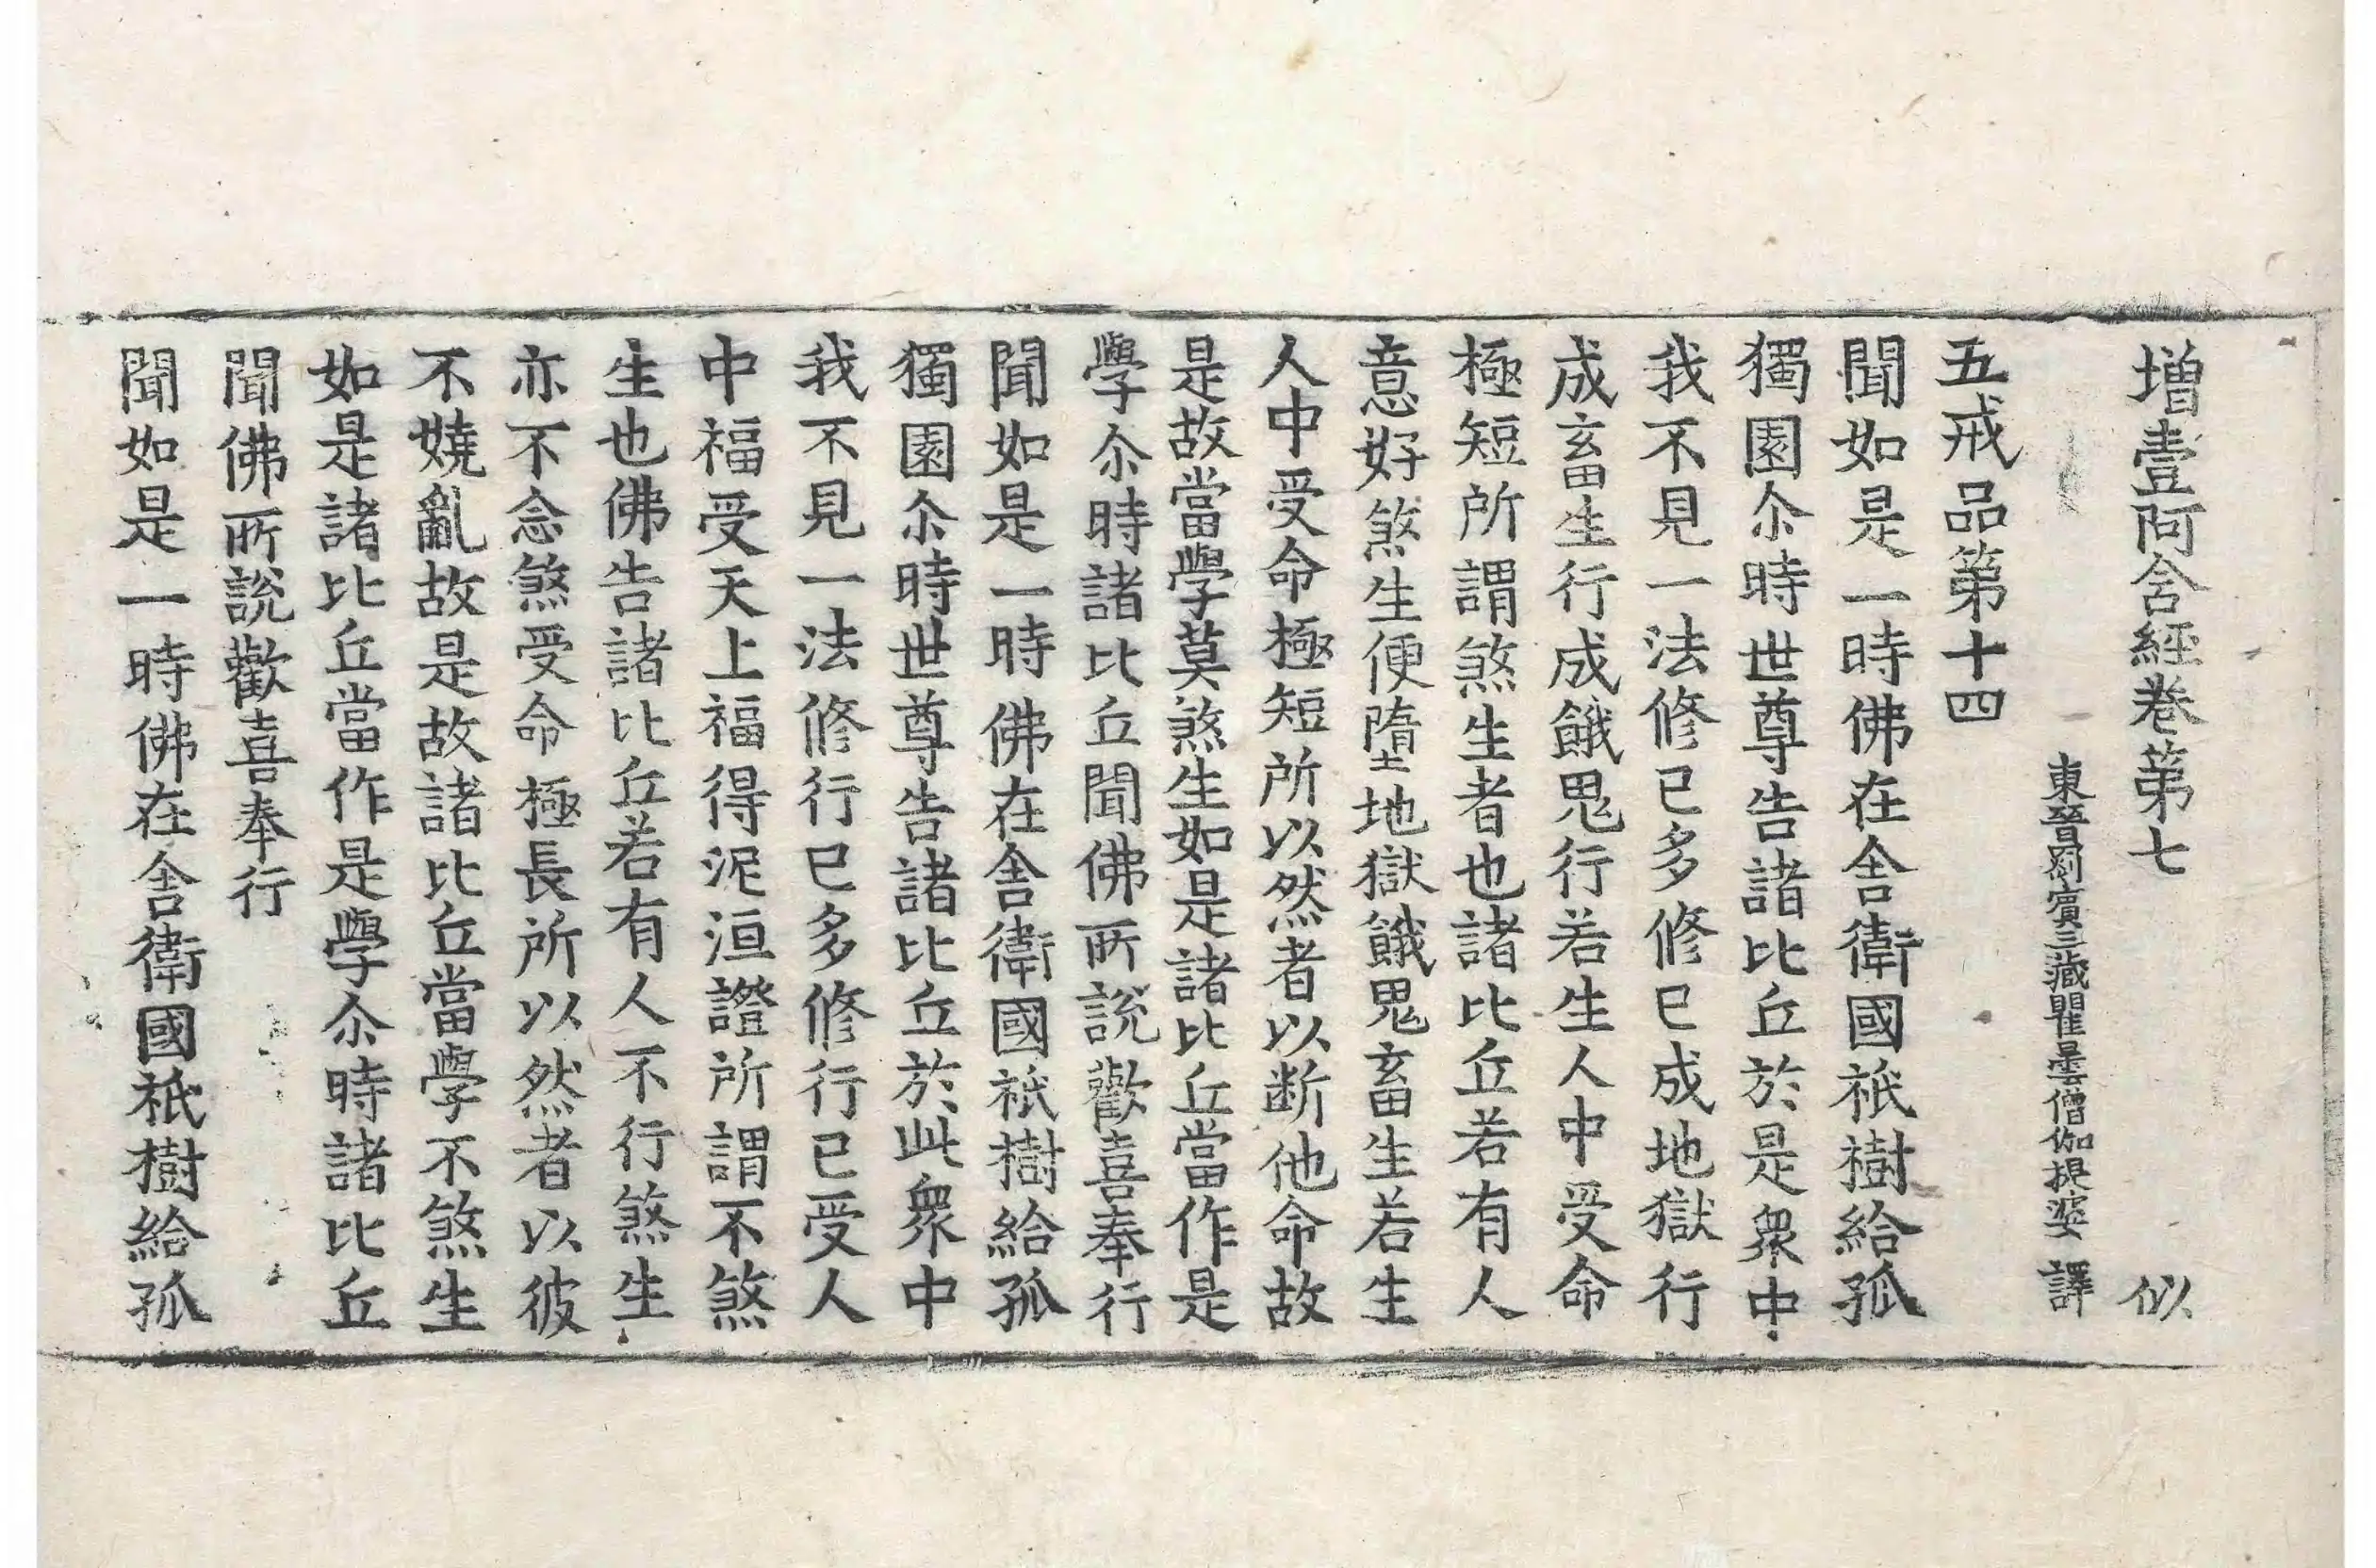 增壹阿含經卷第七 似
東晉罽賓三藏瞿曇僧伽提婆 譯
五戒品第十四
聞如是一時佛在舍衛國祇樹給孤
獨園尒時世尊告諸比丘於是衆中
我不見一法修已多修已成地獄行
成畜生行成餓鬼行若生人中受命
極短所謂煞生者也諸比丘若有人
意好煞生便墮地獄餓鬼畜生若生
人中受命極短所以然者以断他命故
是故當學莫煞生如是諸比丘當作是
學尒時諸比丘聞佛所說歡喜奉行
聞如是一時佛在舍衛國祇樹給孤
獨園尒時世尊告諸比丘於此衆中
我不見一法修行已多修行已受人
中福受天上福得泥洹證所謂不煞
生也佛告諸比丘若有人不行煞生
亦不念煞受命極長所以然者以彼
不嬈亂故是故諸比丘當學不煞生
如是諸比丘當作是學尒時諸比丘
聞佛所說歡喜奉行
聞如是一時佛在舍衛國祇樹給孤